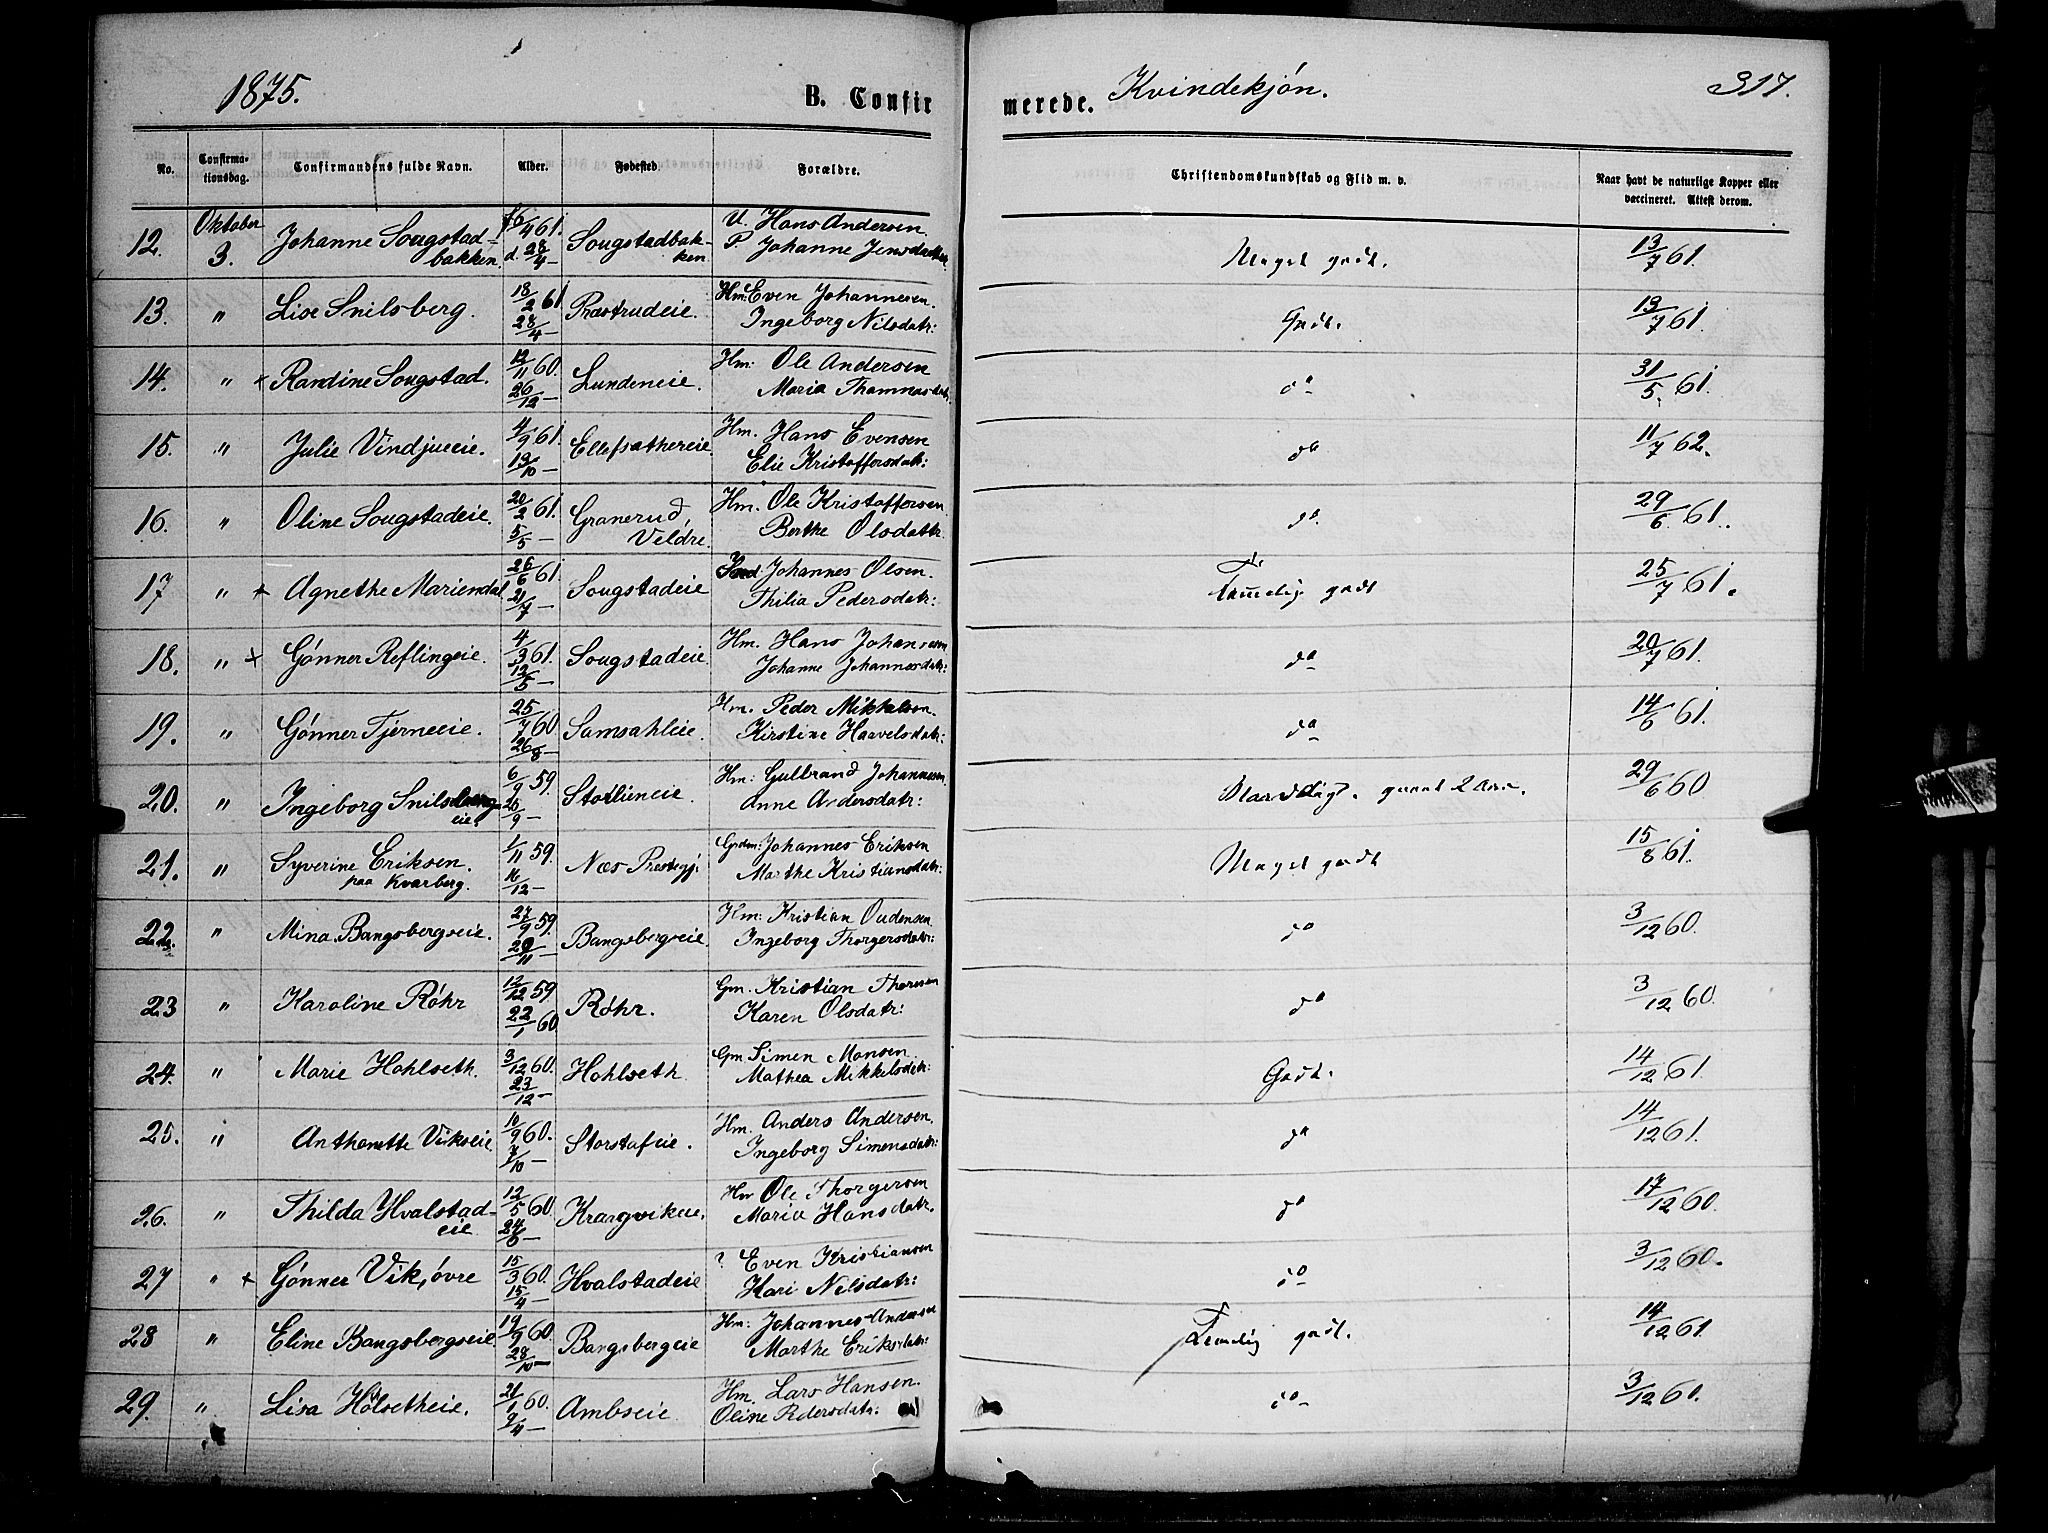 1875. B. Confir merede. Kvindekjøn. 317.
No. Confirma- Confirmandens fulde Navn. Alder. Fødested. Forældre. Christendomskundskab og Flid m. v. Naar havt de naturlige Kopper eller
tionsdag. vaccineret. Attest derom.
Oktober f 6/4 61. U. Hans Andersen.
12. 3. Johanne Sougstad- d. 28/4 – Sougstadbak- P. Johanne Jensdatter. Meget godt. 13/7 61.
bakken. ken
13. " Lise Snilsberg. 18/2 61 Præstrudeie. Hm: Even Johannesen. Godt. 13/7 61.
28/4 – Ingeborg Nilsdatr:
14. " × Randine Sougstad. 12/11 60. Lundeneie. Hm: Ole Andersen do 31/5. 61.
26/12 – Maria Thomasdatr.
15. " Julie Vindjueeie. 4/9 61. Ellefsæthereie Hm. Hans Evensen do 11/7 62.
13/10 – Elie Kristoffersdatr:
16. " Oline Sougstadeie. 20/2 61. Granerud, Hm. Ole Kristoffersen do 29/6. 61.
5/5 – Veldre. Berthe Olsdatr.
17 " × Agnethe Mariendal. 26/6 61. Sougstadeie Johannes Olsen. Temmelig godt 25/7 61.
21/7 – Thilia Pedersdatr:
18. " × Gønner Reflingeie. 4/3 61. Sougstadeie. Hm. Hans Johansen do 20/7 61.
12/5 – Johanne Johannesdatr:
19. " Gønner Tjerneeie. 25/7 60 Samsahleie. Hm. Peder Mikkelsen. do 14/6 61.
26/8 – Kirstine Haavelsdatr:
20. " Ingeborg Snilsberg 6/9 59. Stotluneie. Hm: Gulbrand Johannesen. Maadeligt. gaaet 2 Aar. 29/6 60
eie. 26/9 – Anne Andersdatr:
21. " Syverine Eriksen. 1/11 59. Næs Prestegj: Grdm: Johannes Eriksen Meget godt 15/8 61.
paa Kvarberg. 16/12 – Marthe Kristiansdatr:
22. " Mina Bangsbergseie. 27/9 59. Bangsbergseie. Hm: Kristian Oudensen do 3/12 60.
20/11 – Ingeborg Thorgersdatr:
23 " Karoline Røhr 12/12 59. Røhr. Gm. Kristian Thoresen do 3/12 60.
22/1 60. Karen Olsdatr:
24. " Marie Hohlseth. 3/12 60. Hohlseth Gm. Simen Monsen. Godt. 14/12 61.
23/12 – Mathea Mikkelsdatr:
25. " Anthonette Vikseie 10/9 60. Storstafeie. Hm. Anders Andersen. do 14/12 61.
7/10 – Ingeborg Simensdatr:
26. " Thilda Hvalstad- 12/5 60 Kragvikeie. Hm Ole Thorgersen do 17/12 60.
eie Maria Hansdatr.
27 " × Gønner Vik, øvre 15/3 60. Hvalstadeie ? Even Kristiansen do 3/12 60.
15/4 – Kari Nilsdatr:
28 " Eline Bangsbergseie 19/9 60. Bangsbergeie Hm: Johannes Andersen Temelig godt. 14/12 61.
28/10 – Marthe Eriksdatr:
29. " Lisa Holsetheie. 21/1 60. Ambseie. Hm. Lars Hansen. do 3/12 60.
9/4 – Oline Pedersdatr.